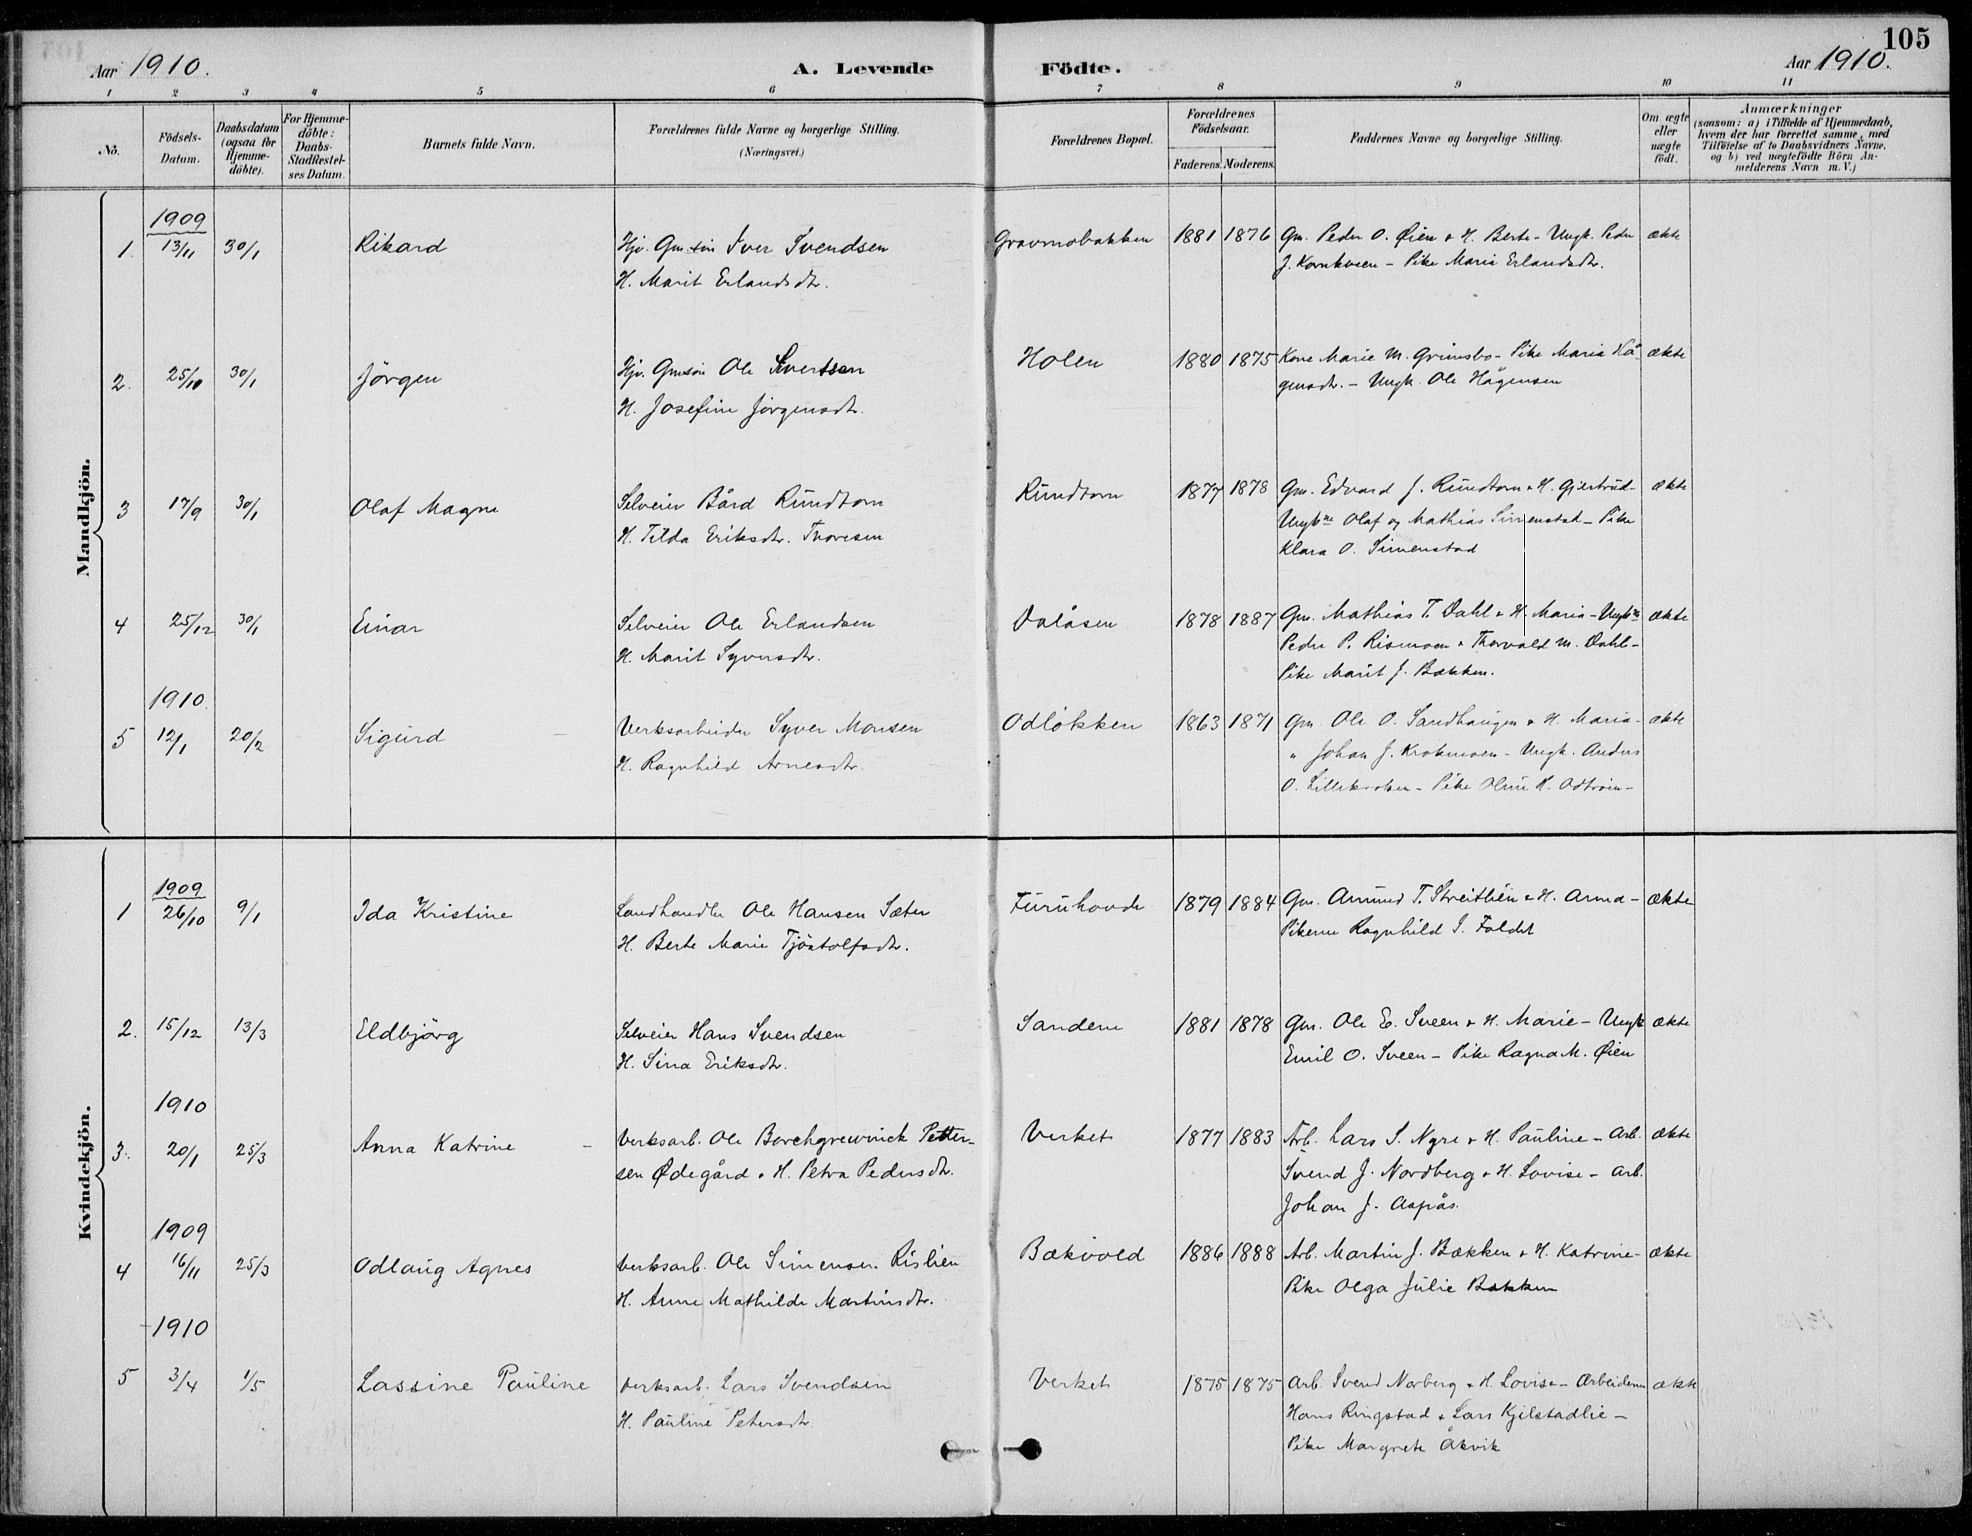 105
Aar 1910.
A. Levende Födte.
Aar 1910.
1 2 3 4 5 6 7 8 9 10 11
No. Födsels-Datum. Daabsdatum (ogsaa for Hjemmedöbte). For Hjemmedöbte: Daabs-Stadfæstelses Datum. Barnets fulde Navn. Forældrenes fulde Navne og borgerlige Stilling. (Næringsvei.) Forældrenes Bopæl. Forældrenes Födselsaar. Faderens. Moderens. Faddernes Navne og borgerlige Stilling. Om ægte eller uægte födt. Anmærkninger (saasom: a) i Tilfælde af Hjemmedaab, hvem der har forrettet samme, med Tilföielse af to Daabsvidners Navne. og b) ved uægtefödte Börn Anmelderens Navn m. V.)
Mandkjön.
1909
1. 13/11 30/1 Rikard Hjv. Gmsön Iver Svendsen Gravmobakken 1881 1876 Gm. Peder O. Øien & H. Berte - Ungk. Peder ækte
H. Marit Erlandsdtr. J. Kornkveen - Pike Maria Erlandsdtr.
2. 25/10 30/1 Jörgen Hjv. Gmsön Ole Sivertsen Holen 1880 1875 Kone Marie M. Grimsbo - Pike Maria Hå- ækte
H. Josefine Jörgensdtr. gensdtr. - Ungk. Ole Hågensen
3 17/9 30/1 Olaf Magne Selveier Bård Rundtom Rundtom 1877 1878 Gm. Edvard J. Rundtom & H. Gjertrud - ækte
H. Tilda Eriksdtr. Thoresen Ungkne Olaf og Mathias Simenstad - Pike
Klara O. Simenstad
4 25/12 30/1 Einar Selveier Ole Erlandsen Valåsen 1878 1887 Gm. Mathias T. Dahl & H. Maria - Ungkne ækte
H. Marit Syversdtr. Peder P. Rismoen & Thorvald M. Dahl -
Pike Marit J. Bækken.
1910
5 12/1 20/2 Sigurd Verksarbeider Syver Monsen Odlökken 1863 1871 Gm Ole O. Sandhaugen & H. Maria - ækte
H. Ragnhild Arnesdtr. " Johan J. Krokmoen - Ungk. Anders
O. Lillekroken - Pike Oline H. Odtröen -
Kvindekjön.
1909
1 26/10 9/1 Ida Kristine Landhandler Ole Hansen Sæter Furuhovde 1879 1884 Gm. Amund T. Streitlien & H. Anna - ækte
H. Berte Marie Tjöstolfsdtr. Pikerne Ragnhild S. Faldet
2. 15/12 13/3 Eldbjörg Selveier Hans Svendsen Sandene 1881 1878 Gm. Ole E. Sveen & H. Marie - Ungk ækte
H. Sina Eriksdtr. Emil O. Sveen - Pike Ragna M. Øien
1910
3. 20/1 25/3 Anna Katrine Verksarb. Ole Borchgrewinck Petter- Verket 1877 1883 Arb. Lars S. Nyre & H. Pauline - Arb. ækte
sen Ødegård & H. Petra Pedersdtr. Svend J. Nordberg & H. Lovise - Arb.
Johan J. Aspås.
1909
4 16/11 25/3 Odlaug Agnes Verksarb. Ole Simensen Rislien Bækvold 1886 1888 Arb. Martin J. Bækken & H. Katrine - ækte
H. Anne Mathilde Martinsdtr. Pike Olga Julie Bækken
1910
5 3/4 1/5 Lassine Pauline Verksarb. Lars Svendsen Verket 1875 1875 Arb. Svend Norberg & H. Lovise - Arbeiderne ækte
H. Pauline Petersdtr. Hans Ringstad & Lars Kjelstadlie -
Pike Margrete Åkvik